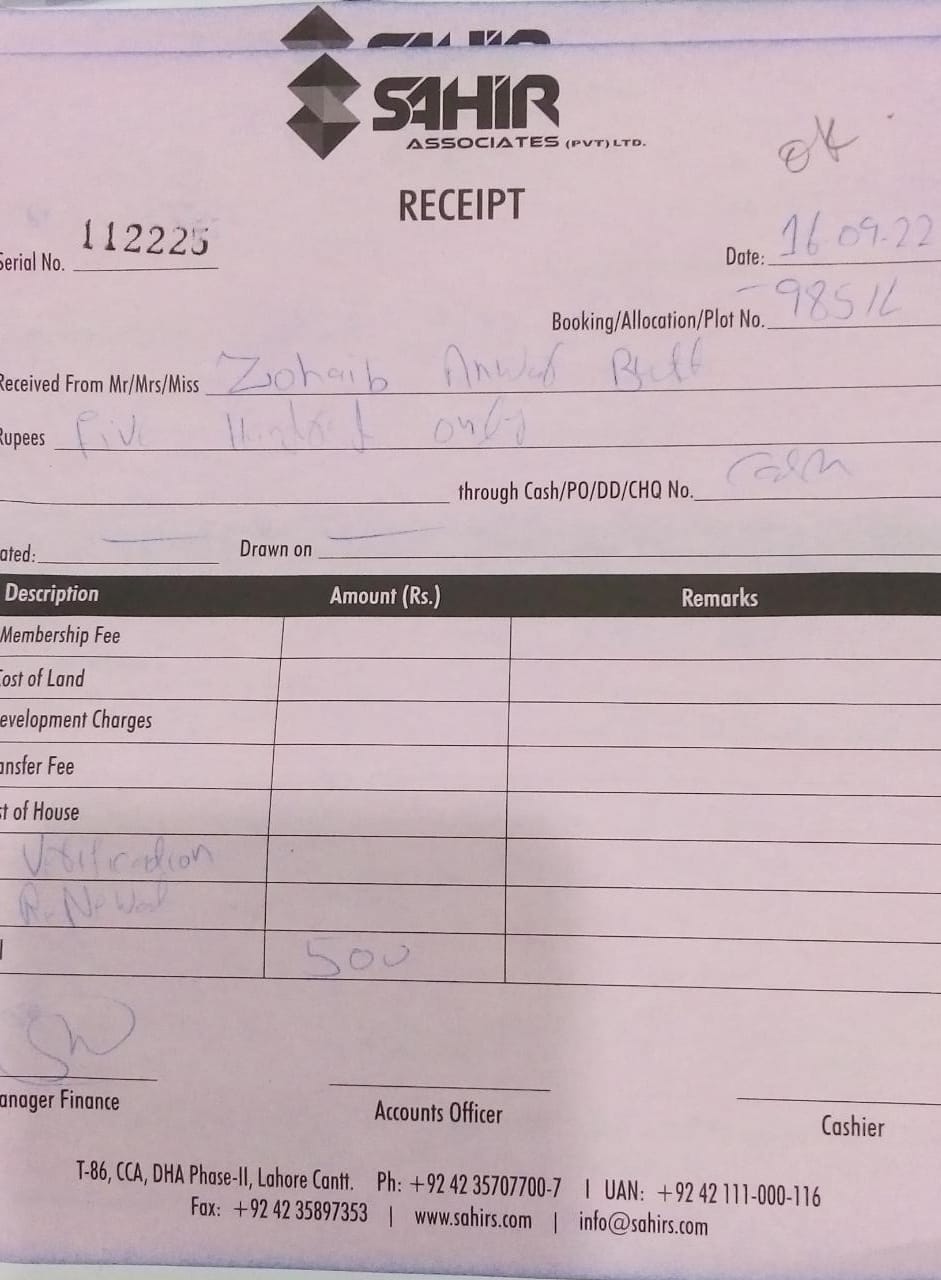 SAHIR
SAHIR
ASSOCIATES (PVT) LTD.
ok
RECEIPT
Serial No. 112225
Date: 16-09-22
Booking/Allocation/Plot No. 985/L
Received From Mr/Mrs/Miss Zohaib Anwar Butt
Rupees Five Hundred only
through Cash/PO/DD/CHQ No. Cash
ated: Drawn on
Description Amount (Rs.) Remarks
Membership Fee
Cost of Land
evelopment Charges
ansfer Fee
st of House
Verification
Renewal
l 500
anager Finance Accounts Officer Cashier
T-86, CCA, DHA Phase-II, Lahore Cantt. Ph: +92 42 35707700-7 | UAN: +92 42 111-000-116
Fax: +92 42 35897353 | www.sahirs.com | info@sahirs.com